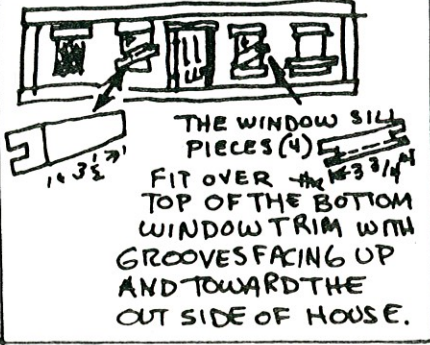 THE WINDOW SILL
PIECES (4)
3 1/2
3 3/4
FIT OVER the
TOP OF THE BOTTOM
WINDOW TRIM WITH
GROOVES FACING UP
AND TOWARD THE
OUT SIDE OF HOUSE.